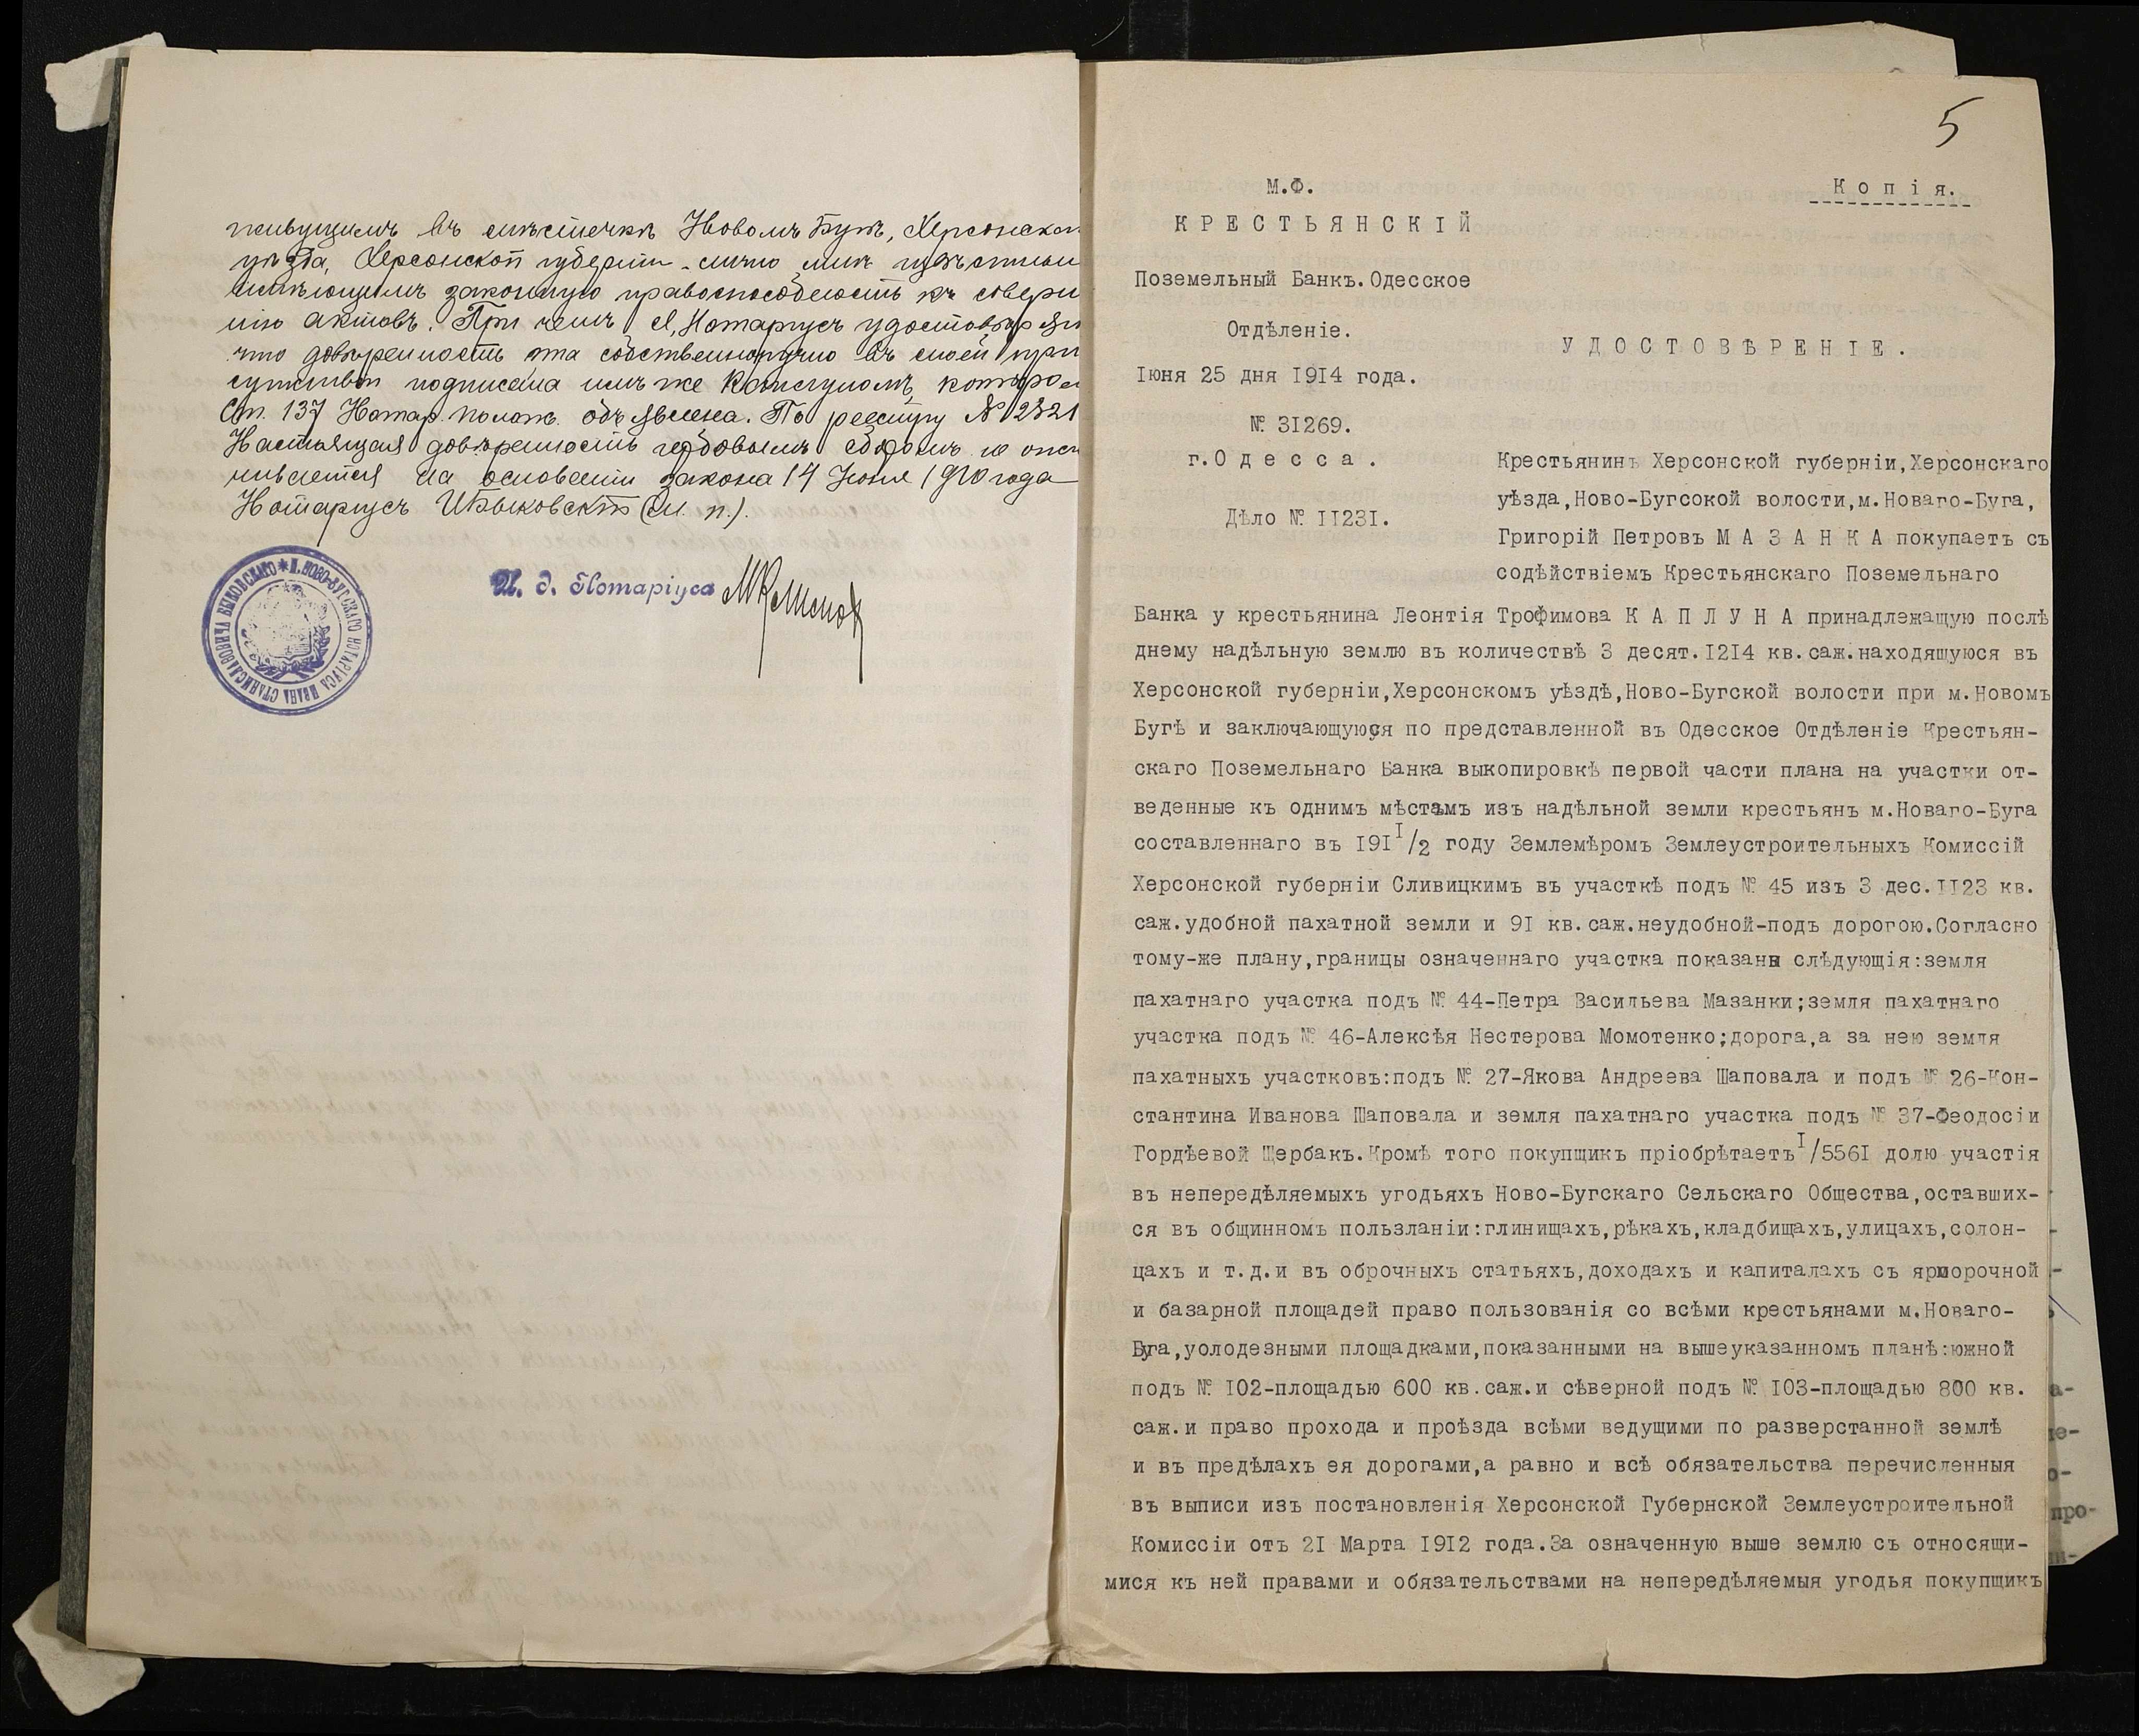 живущимъ въ мѣстечкѣ Новомъ Бугѣ, Херсонскаго
уѣзда, Херсонской губерніи лично мнѣ извѣстнымъ
имѣющимъ законную правоспособность къ соверше
нію актовъ. При чемъ я, Нотаріусъ удостовѣряю
что довѣренность эта собственноручно въ моей при
сутствіи подписана имъ же Каплуномъ, которо
Ст. 137 Нотар. полож. объявлена. По реестру № 2321
Настоящая довѣренность гербовымъ сборомъ не опл
чивается на основаніи закона 14 Іюня 1910 года
Нотаріусъ И Быковскій (М. п.).
И. д. Нотаріуса
* Н. НОВО-БУГСКАГО НОТАРІУСА ИВАНА СТАНИСЛАВОВИЧА БЫКОВСКАГО
5
М.Ф.
Копія.
КРЕСТЬЯНСКІЙ
Поземельный Банкъ.Одесское
Отдѣленіе.
УДОСТОВѢРЕНІЕ.
Іюня 25 дня I9I4 года.
№ 3I269.
г.Одесса.
Дѣло № II23I.
Крестьянинъ Херсонской губерніи,Херсонскаго
уѣзда,Ново-Бугсокой волости,м.Новаго-Буга,
Григорій Петровъ М А З А Н К А покупаетъ съ
содѣйствіемъ Крестьянскаго Поземельнаго
Банка у крестьянина Леонтія Трофимова К А П Л У Н А принадлежащую послѣ
днему надѣльную землю въ количествѣ 3 десят.I2I4 кв.саж.находящуюся въ
Херсонской губерніи,Херсонскомъ уѣздѣ,Ново-Бугской волости при м.Новомъ
Бугѣ и заключающуюся по представленной въ Одесское Отдѣленіе Крестьян-
скаго Поземельнаго Банка выкопировкѣ первой части плана на участки от-
веденные къ однимъ мѣстамъ изъ надѣльной земли крестьянъ м.Новаго-Буга
составленнаго въ I9I I/2 году Землемѣромъ Землеустроительныхъ Комиссій
Херсонской губерніи Сливицкимъ въ участкѣ подъ № 45 изъ 3 дес.II23 кв.
саж.удобной пахатной земли и 9I кв.саж.неудобной-подъ дорогою.Согласно
тому-же плану,границы означеннаго участка показаны слѣдующія:земля
пахатнаго участка подъ № 44-Петра Васильева Мазанки;земля пахатнаго
участка подъ № 46-Алексѣя Нестерова Момотенко;дорога,а за нею земля
пахатныхъ участковъ:подъ № 27-Якова Андреева Шаповала и подъ № 26-Кон-
стантина Иванова Шаповала и земля пахатнаго участка подъ № 37-Феодосіи
Гордѣевой Щербакъ.Кромѣ того покупщикъ пріобрѣтаетъ I/556I долю участія
въ непередѣляемыхъ угодьяхъ Ново-Бугскаго Сельскаго Общества,оставших-
ся въ общинномъ пользланіи:глинищахъ,рѣкахъ,кладбищахъ,улицахъ,солон-
цахъ и т.д.и въ оброчныхъ статьяхъ,доходахъ и капиталахъ съ ярморочной
и базарной площадей право пользованія со всѣми крестьянами м.Новаго-
Буга,уолодезными площадками,показанными на вышеуказанномъ планѣ:южной
подъ № I02-площадью 600 кв.саж.и сѣверной подъ № I03-площадью 800 кв.
саж.и право прохода и проѣзда всѣми ведущими по разверстанной землѣ
и въ предѣлахъ ея дорогами,а равно и всѣ обязательства перечисленныя
въ выписи изъ постановленія Херсонской Губернской Землеустроительной
Комиссіи отъ 2I Марта I9I2 года.За означенную выше землю съ относящи-
мися къ ней правами и обязательствами на непередѣляемыя угодья покупщикъ